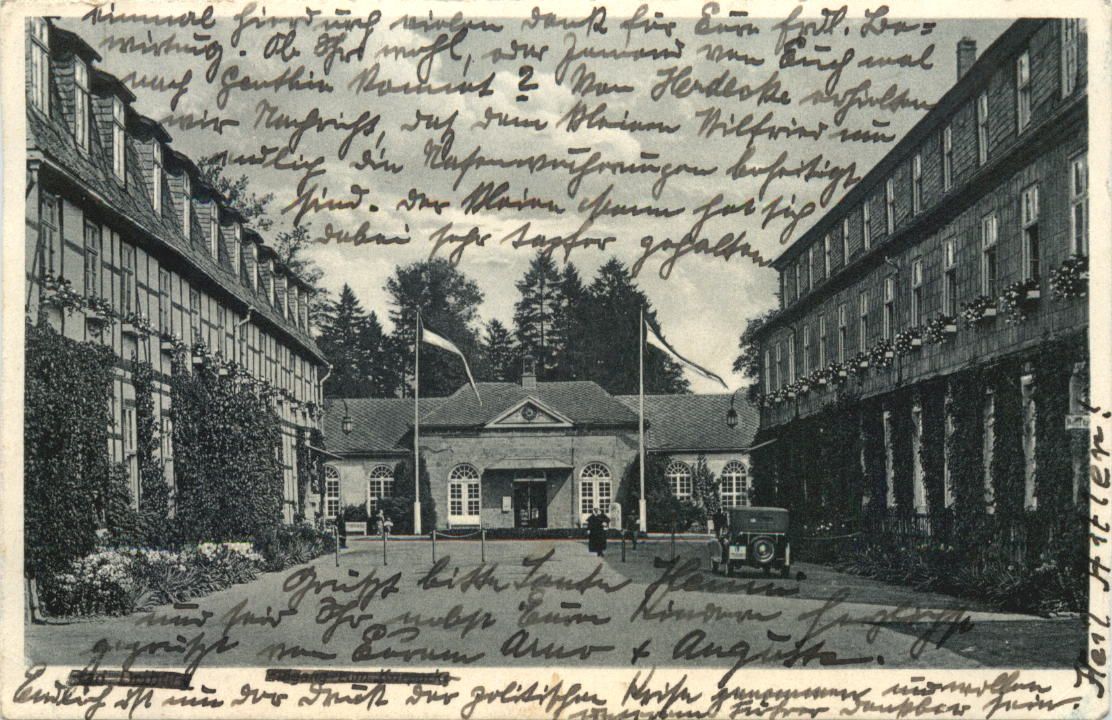 einmal hierdurch vielen Dank für Eure frdl. Be=
wirtung. Ob Ihr wohl, oder Jemand von Euch mal
nach Genthin kommt? Von Hedecke erhielten
wir Nachricht, daß dem kleinen Wilfried nun
endlich die Nasenwucherungen beseitigt
sind. Der kleine Mann hat sich
dabei sehr tapfer gehalten.
Grüßt bitte Tante
und seid Ihr nebst Euren Kindern herzlichst
gegrüßt von Euren Arno + Auguste.
Endlich ist nun der Druck der politischen Krise genommen und wir wollen
unserem Führer dankbar sein.
Heil Hitler!